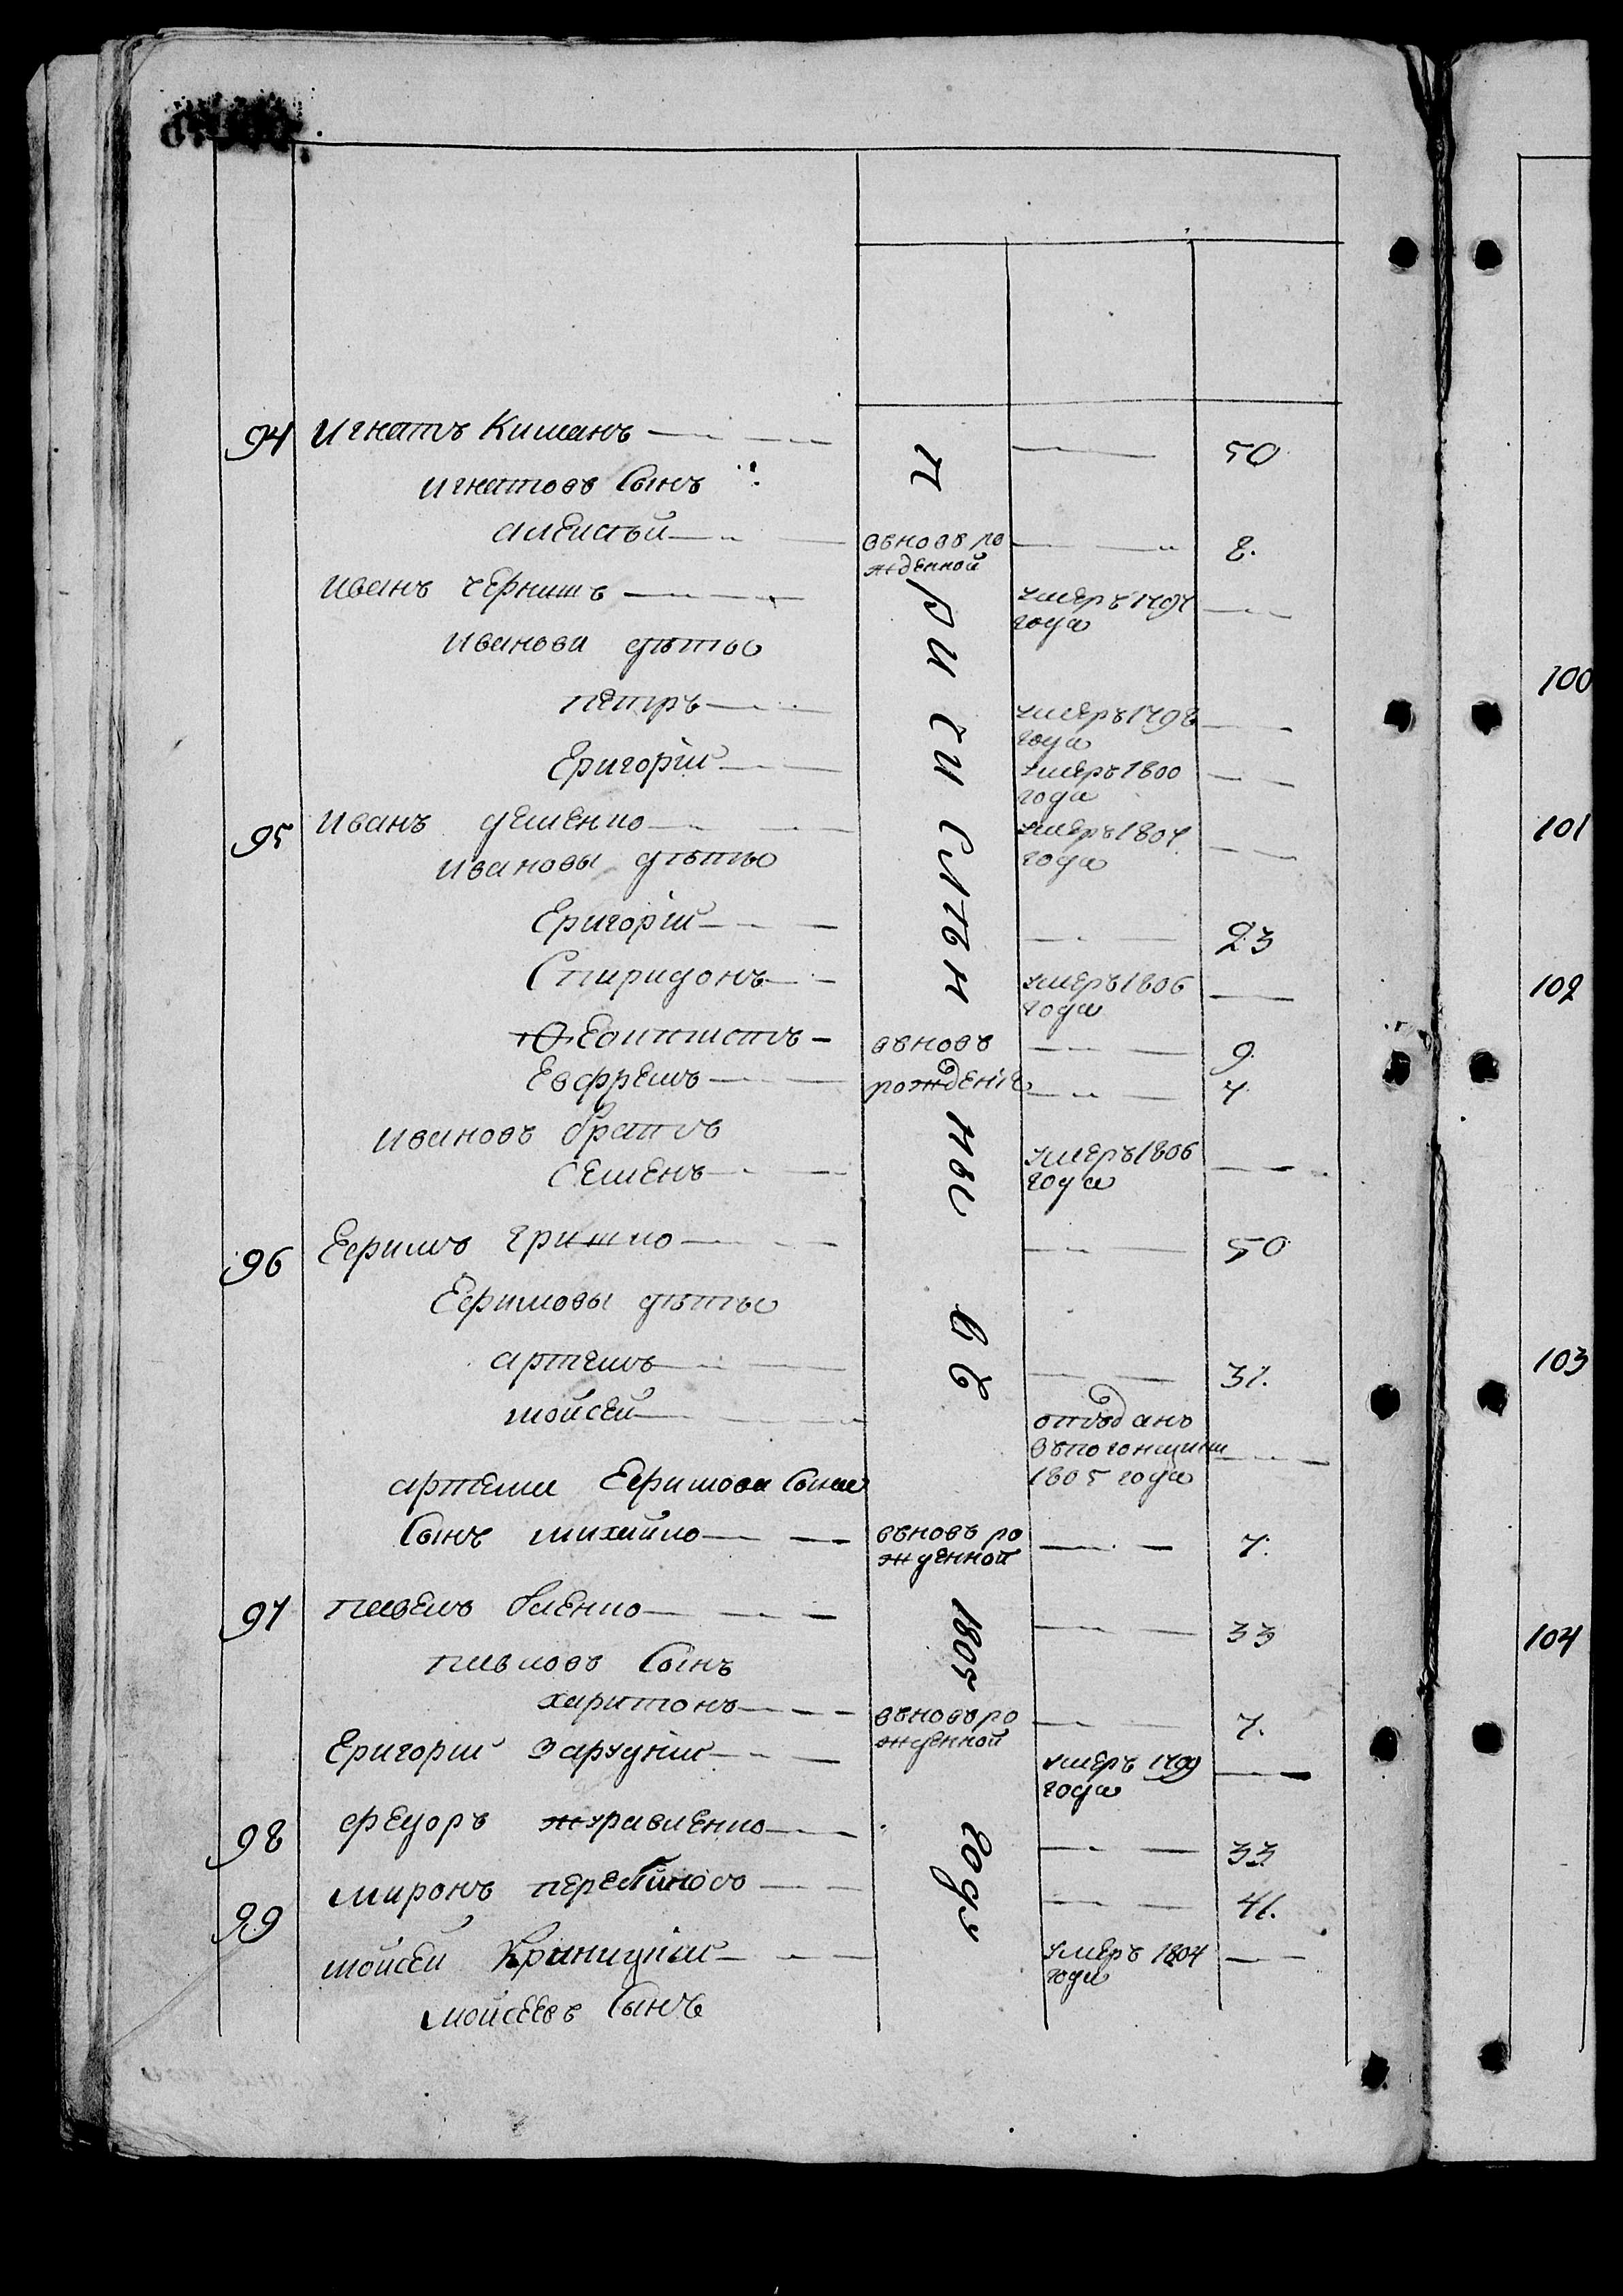 94 Игнатъ Киманъ 50
Игнатовъ Сынъ
алексѣй вновь ро 8.
жденной
Иванъ чернишъ умеръ 1797
года
Иванови дѣтьи
петръ умеръ 1798
года
Григорій умеръ 1800
года
95 Иванъ деменко умеръ 1807
года
Ивановы дѣтьи
Григорій 23
Спиридонъ умеръ 1806
года
Феоктистъ вновь 9
Евфремъ рожденіе 7
Ивановъ братъ
Семенъ умеръ 1806
года
96 Ефимъ гришко 50
Ефимовы дѣтьи
артемъ 31.
мойсей отъданъ
въпогонщики
1805 года
артема Ефимова сына
Сынъ михайло вновь ро 7.
жденной
97 павелъ 33
павловъ Сынъ
харитонъ вновь ро 7.
жденной
Григорій Заруднiй умеръ 1799
года
98 федоръ журавленко 33
99 миронъ 41.
мойсей Криницкій умеръ 1804
года
мойсеевъ Сынъ
при сислѣн ныи въ 1805 году
100
101
102
103
104